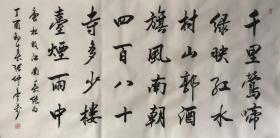 千里鶯啼
绿映红水
村山郭酒
旗風南朝
四百八十
寺多少樓
臺煙雨中
唐杜牧江南春绝句
丁酉